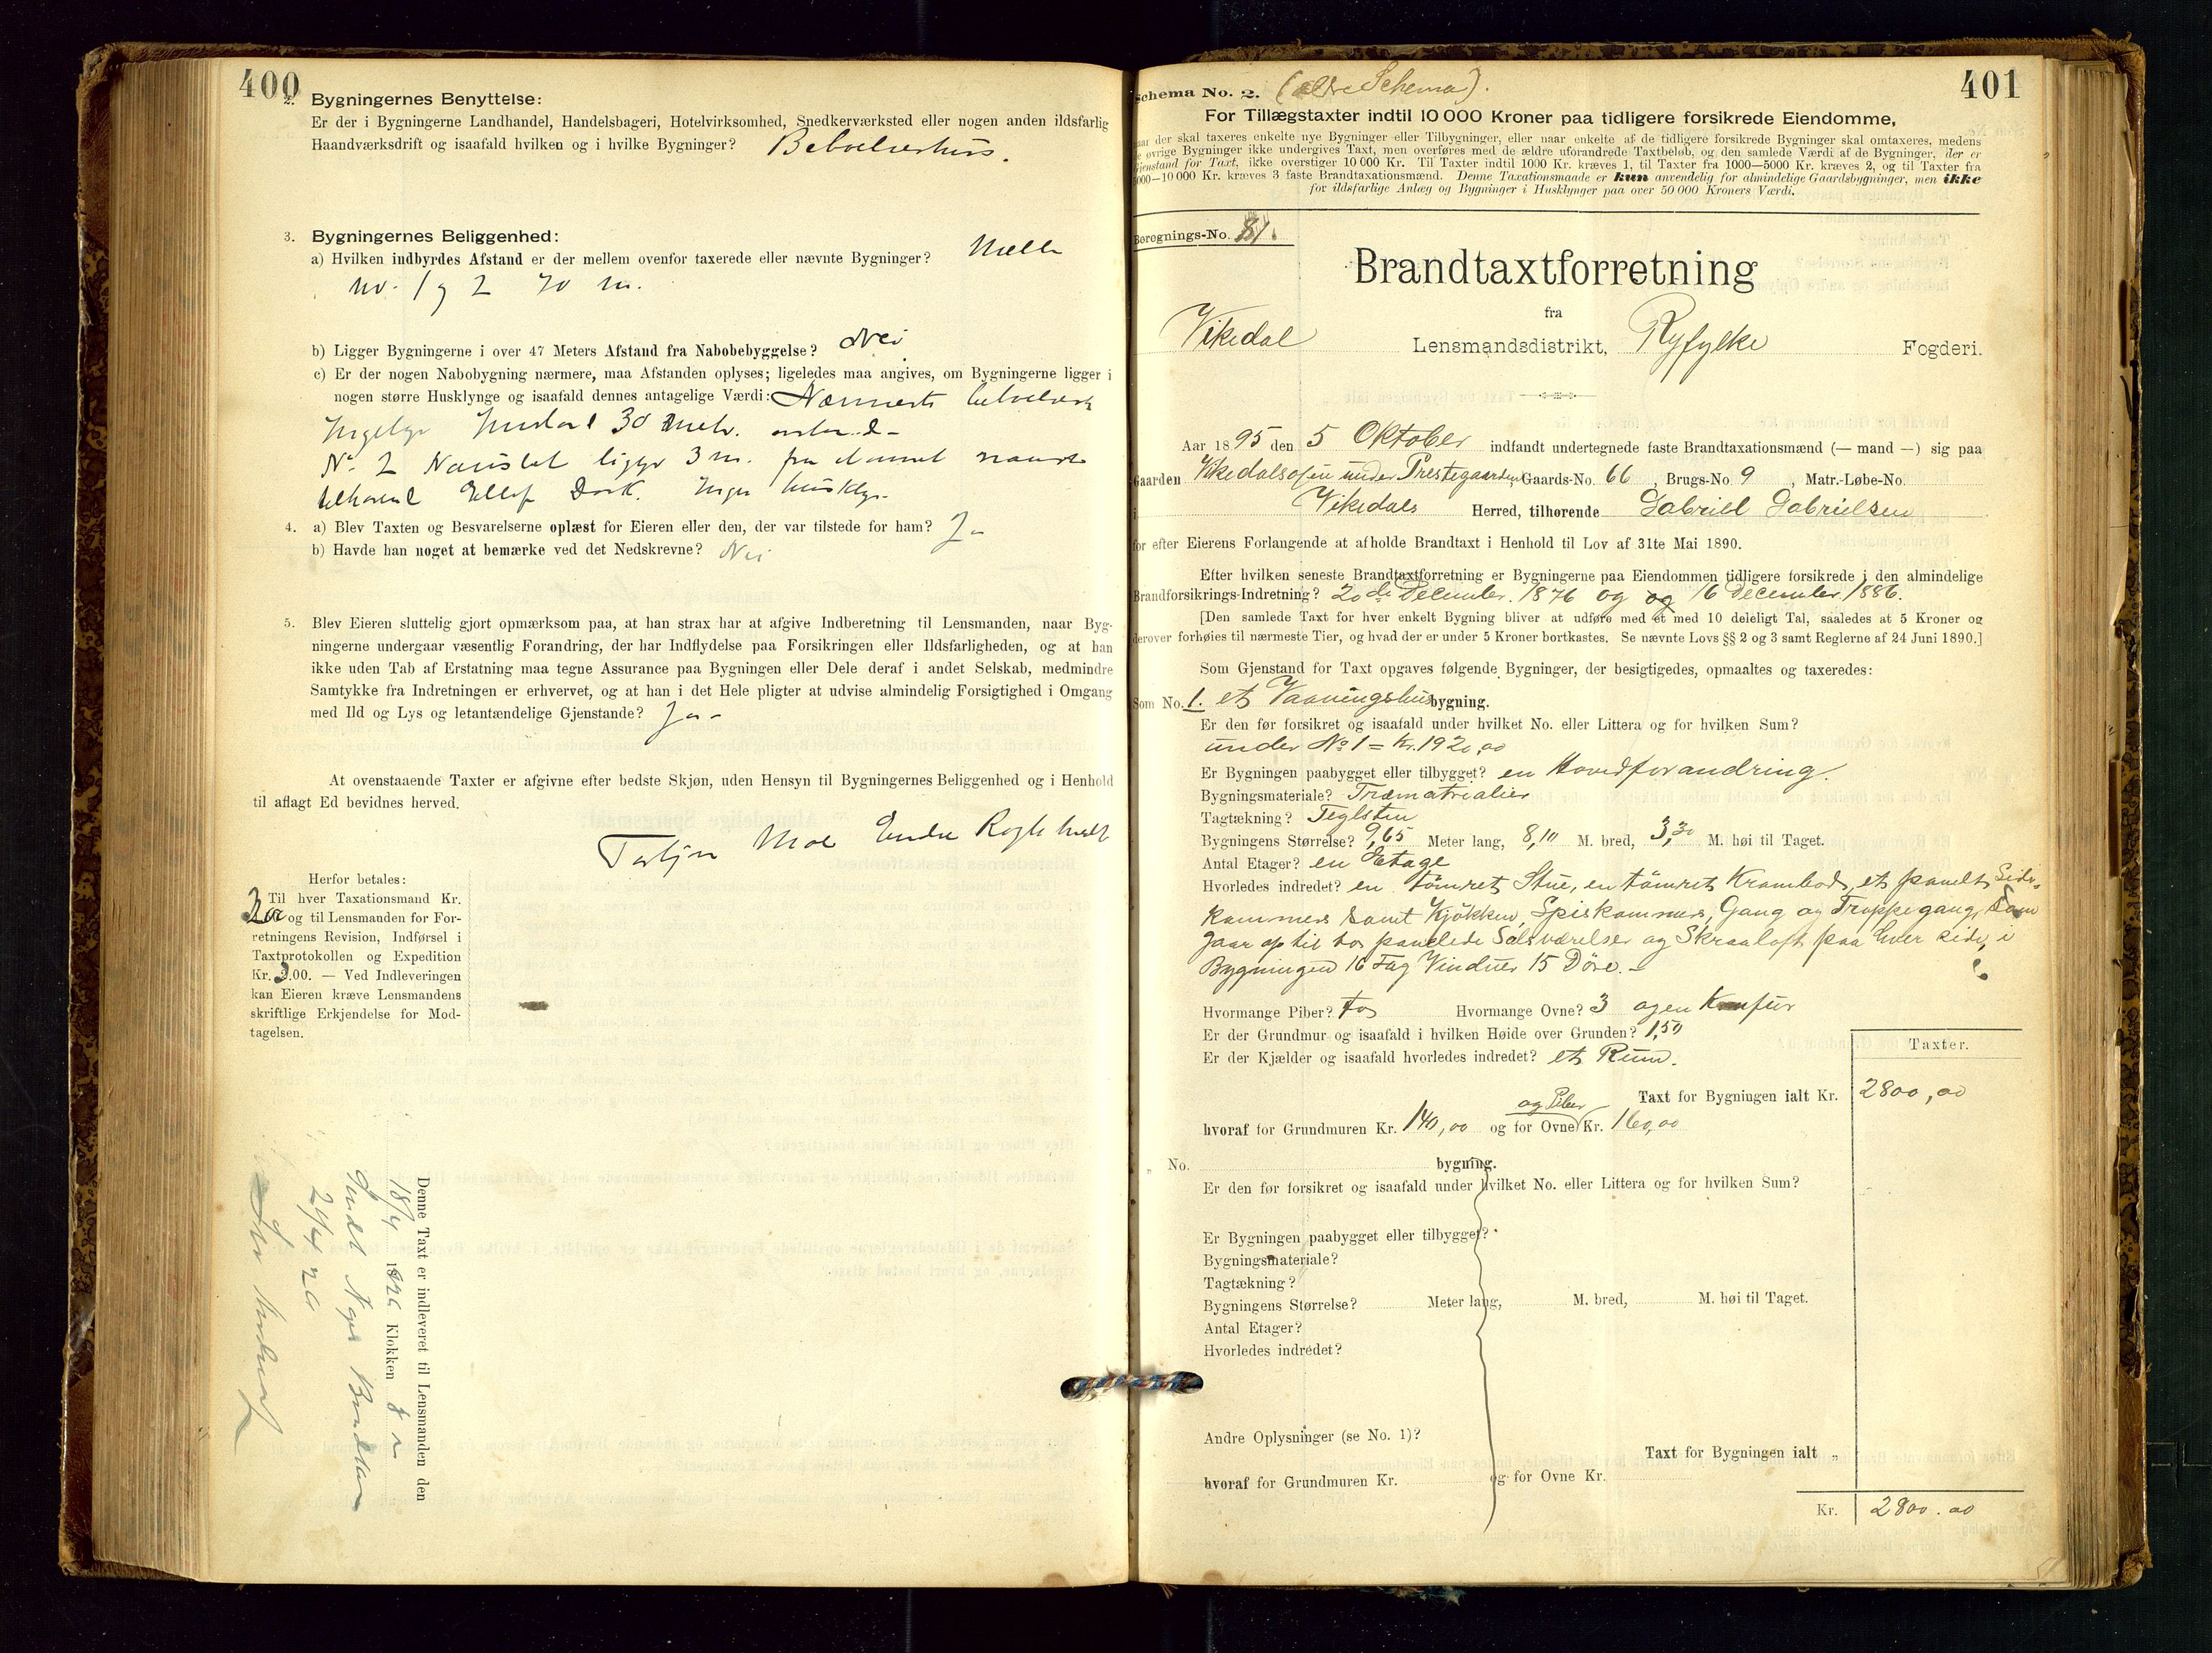 400
2. Bygningernes Benyttelse:
Er der i Bygningerne Landhandel, Handelsbageri, Hotelvirksomhed, Snedkerværksted eller nogen anden ildsfarlig
Haandværksdrift og isaafald hvilken og i hvilke Bygninger? Beboelseshus.
3. Bygningernes Beliggenhed:
a) Hvilken indbyrdes Afstand er der mellem ovenfor taxerede eller nævnte Bygninger? Mellem
no. 1 og 2 70 m.
b) Ligger Bygningerne i over 47 Meters Afstand fra Nabobebyggelse? Nei
c) Er der nogen Nabobygning nærmere, maa Afstanden oplyses; ligeledes maa angives, om Bygningerne ligger i
nogen større Husklynge og isaafald dennes antagelige Værdi: Nærmeste
30 metr.
No 2 Naustet ligger 3 m. fra
tilhørende Ellef
4. a) Blev Taxten og Besvarelserne oplæst for Eieren eller den, der var tilstede for ham? Ja
b) Havde han noget at bemærke ved det Nedskrevne? Nei
5. Blev Eieren sluttelig gjort opmærksom paa, at han strax har at afgive Indberetning til Lensmanden, naar Byg-
ningerne undergaar væsentlig Forandring, der har Indflydelse paa Forsikringen eller Ildsfarligheden, og at han
ikke uden Tab af Erstatning maa tegne Assurance paa Bygningen eller Dele deraf i andet Selskab, medmindre
Samtykke fra Indretningen er erhvervet, og at han i det Hele pligter at udvise almindelig Forsigtighed i Omgang
med Ild og Lys og letantændelige Gjenstande? Ja -
At ovenstaaende Taxter er afgivne efter bedste Skjøn, uden Hensyn til Bygningernes Beliggenhed og i Henhold
til aflagt Ed bevidnes herved.
Moe Endre
Herfor betales:
Til hver Taxationsmand Kr.
og til Lensmanden for For-
retningens Revision, Indførsel i
Taxtprotokollen og Expedition
Kr. 3.00. — Ved Indleveringen
kan Eieren kræve Lensmandens
skriftlige Erkjendelse for Mod-
tagelsen.
Denne Taxt er indleveret til Lensmanden den
18/4 1926 Klokken 8
Sendt
21/4 26
401
Schema No. 2. (ældre Schema).
For Tillægstaxter indtil 10 000 Kroner paa tidligere forsikrede Eiendomme,
naar der skal taxeres enkelte nye Bygninger eller Tilbygninger, eller naar enkelte af de tidligere forsikrede Bygninger skal omtaxeres, medens
de øvrige Bygninger ikke undergives Taxt, men overføres med de ældre uforandrede Taxtbeløb, og den samlede Værdi af de Bygninger, der er
Gjenstand for Taxt, ikke overstiger 10 000 Kr. Til Taxter indtil 1000 Kr. kræves 1, til Taxter fra 1000—5000 Kr. kræves 2, og til Taxter fra
5000—10 000 Kr. kræves 3 faste Brandtaxationsmænd. Denne Taxationsmaade er kun anvendelig for almindelige Gaardsbygninger, men ikke
for ildsfarlige Anlæg og Bygninger i Husklynger paa over 50 000 Kroners Værdi.
Beregnings-No. 81.
Brandtaxtforretning
fra
Vikedal Lensmandsdistrikt, Ryfylke Fogderi.
Aar 1895 den 5 Oktober indfandt undertegnede faste Brandtaxationsmænd (— mand —) sig paa
Gaarden Vikedalsosen under Prestegaarden, Gaards-No. 66, Brugs-No. 9, Matr.-Løbe-No.
i Vikedals Herred, tilhørende Gabriel Gabrielsen
for efter Eierens Forlangende at afholde Brandtaxt i Henhold til Lov af 31te Mai 1890.
Efter hvilken seneste Brandtaxtforretning er Bygningerne paa Eiendommen tidligere forsikrede i den almindelige
Brandforsikrings-Indretning? 20de December. 1876 og og 16 December 1886.
[Den samlede Taxt for hver enkelt Bygning bliver at udføre med et med 10 deleligt Tal, saaledes at 5 Kroner og
derover forhøies til nærmeste Tier, og hvad der er under 5 Kroner bortkastes. Se nævnte Lovs §§ 2 og 3 samt Reglerne af 24 Juni 1890.]
Som Gjenstand for Taxt opgaves følgende Bygninger, der besigtigedes, opmaaltes og taxeredes:
Som No. 1. et Vaaningshusbygning.
Er den før forsikret og isaafald under hvilket No. eller Littera og for hvilken Sum?
under No 1 = Kr. 1920,00
Er Bygningen paabygget eller tilbygget? en Hovedforandring.
Bygningsmateriale? Træmatrialier
Tagtækning? Teglsten
Bygningens Størrelse? 9,65 Meter lang, 8,10 M. bred, 3,30 M. høi til Taget.
Antal Etager? en Etage
Hvorledes indredet? en tømret Stue, en tømret Krambod, et panelt Side-
kammers samt Kjøkken, Spiskammers, Gang og Trappegang, Som
gaar op til to panelede Salsværelser og Skraaloft paa hver side, i
Bygningen 16 Fag Vinduer 15 Døre. -
Hvormange Piber? to Hvormange Ovne? 3 og en Komfur
Er der Grundmur og isaafald i hvilken Høide over Grunden? 1,50
Er der Kjælder og isaafald hvorledes indredet? et Rum.
Taxter.
Taxt for Bygningen ialt Kr. 2800,00
og Piber
hvoraf for Grundmuren Kr. 140,00 og for Ovne Kr. 160,00
" No. bygning.
Er den før forsikret og isaafald under hvilket No. eller Littera og for hvilken Sum?
Er Bygningen paabygget eller tilbygget?
Bygningsmateriale?
Tagtækning?
Bygningens Størrelse? Meter lang, M. bred, M. høi til Taget.
Antal Etager?
Hvorledes indredet?
Andre Oplysninger (se No. 1)?
Taxt for Bygningen ialt "
hvoraf for Grundmuren Kr. og for Ovne Kr.
Kr. 2800.00